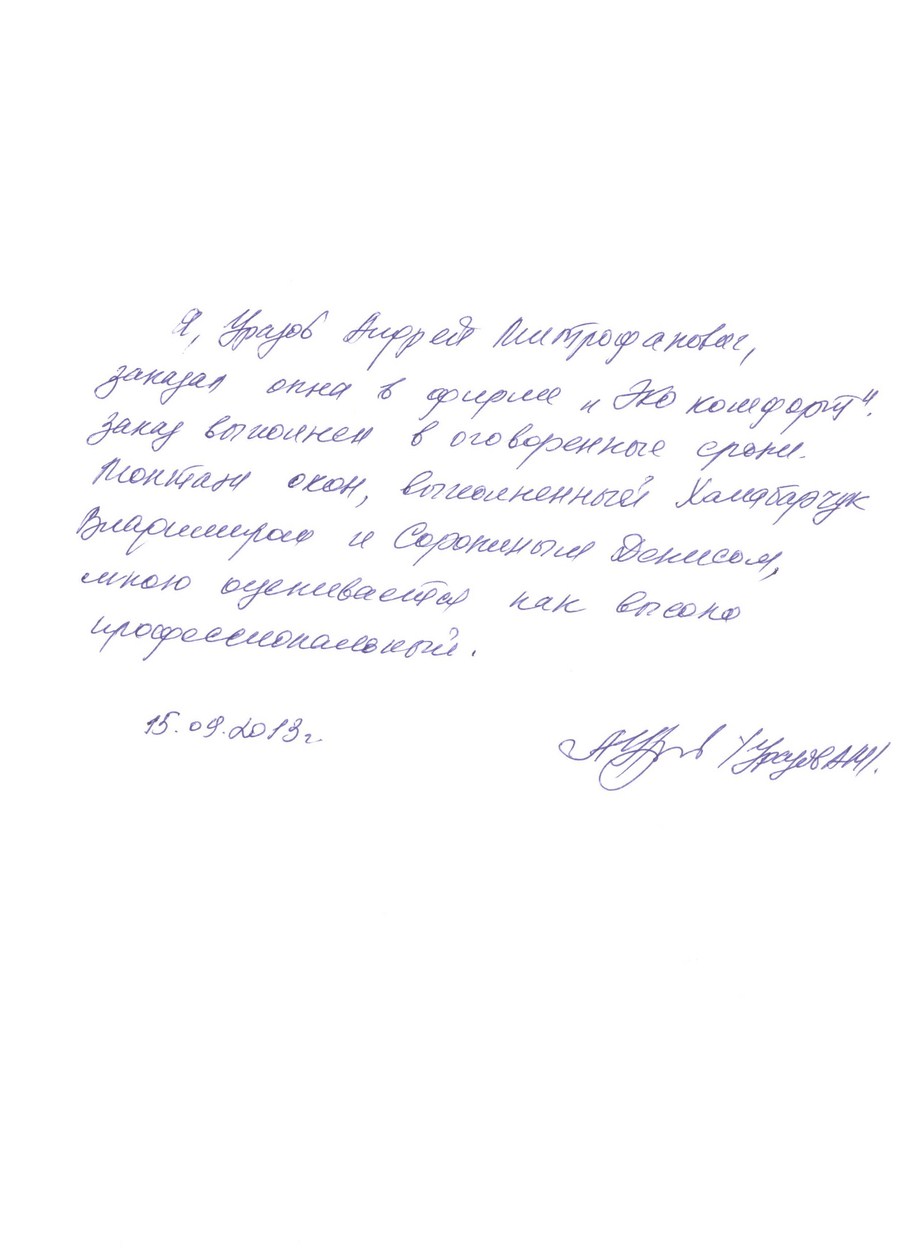 Я, Уразов Андрей Митрофанович,
заказал окна в фирме "Эко комфорт".
Заказ выполнен в оговоренные сроки.
Монтаж окон, выполненный Хамабарчук
Владимиром и Сорокиным Денисом,
мною оценивается как высоко
профессиональный.
15.09.2013г.
/Уразов А.М/.